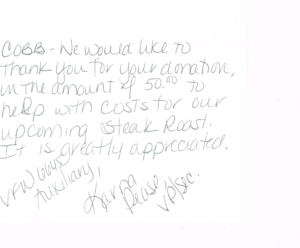 COBB - We would like to
thank you for your donation,
in the amount of 50.00 to
help with costs for our
upcoming Steak Roast.
It is greatly appreciated.
VFW
Auxiliary,
VP/Sec.